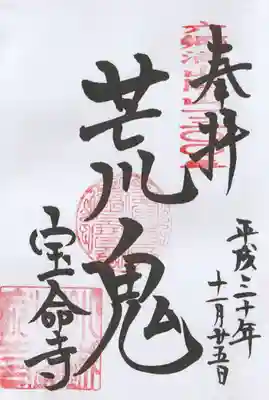 奉拝
荒鬼
宝命寺
平成三十年
十一月廿五日